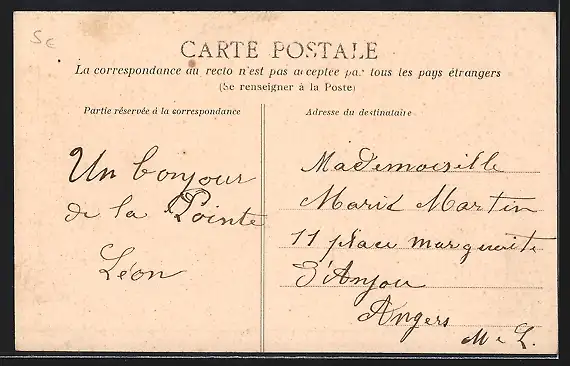 5 €
CARTE POSTALE
La correspondance au recto n'est pas acceptée par tous les pays étrangers
(Se renseigner à la Poste)
Partie réservée à la correspondance
Un bonjour
de la Pointe
Léon
Adresse du destinataire
Mademoiselle
Marie Martin
11 place marguerite
d'Anjou
Angers
M & L.